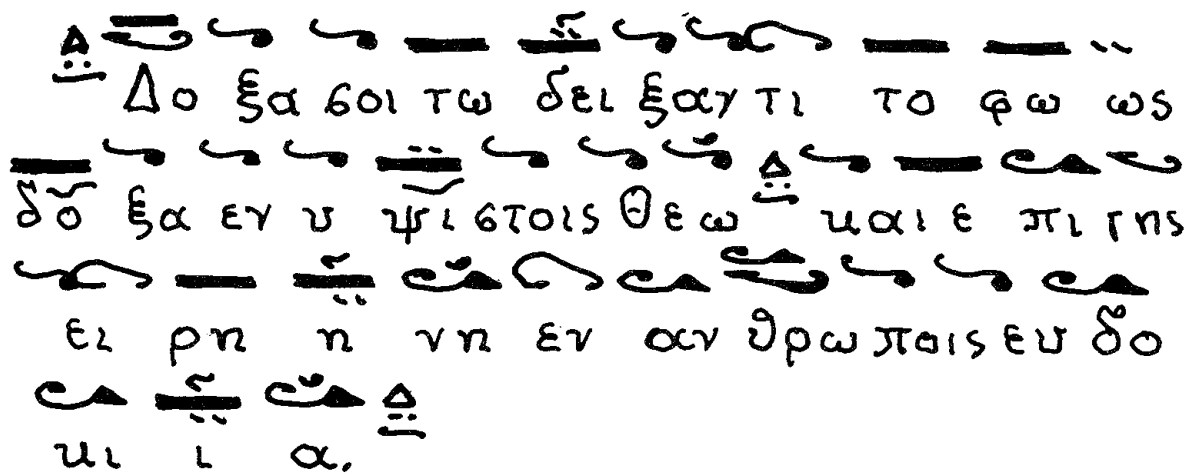 Δο ξα σοι τω δει ξαν τι το φω ως
δο ξα εν υ ψι στοις Θε ω και ε πι γης
ει ρη η νη εν αν θρω ποις ευ δο
κι ι α.